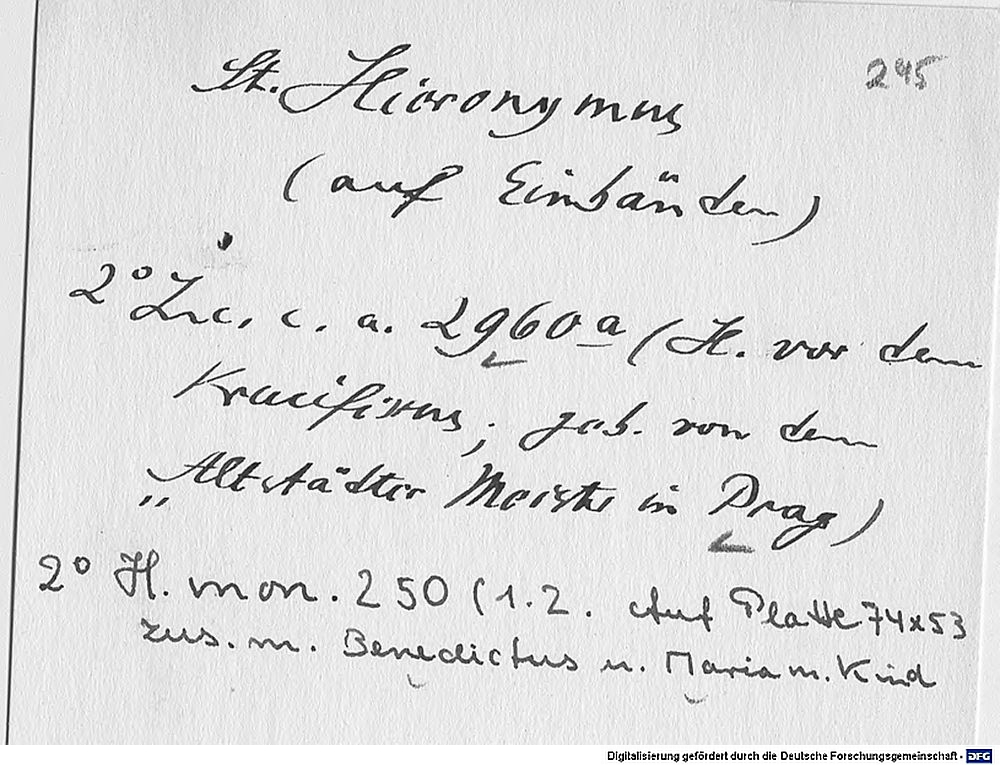 245
St. Hieronymus
(auf Einbänden)
2° Inc. c. a. 2960a (H. vor dem
Kruzifixus, geb. von dem
„Altstädter Meister in Prag)
2° H. mon. 250 (1.2. Auf Platte 74x53
zus. m. Benedictus u. Maria m. Kind
Digitalisierung gefördert durch die Deutsche Forschungsgemeinschaft - DFG